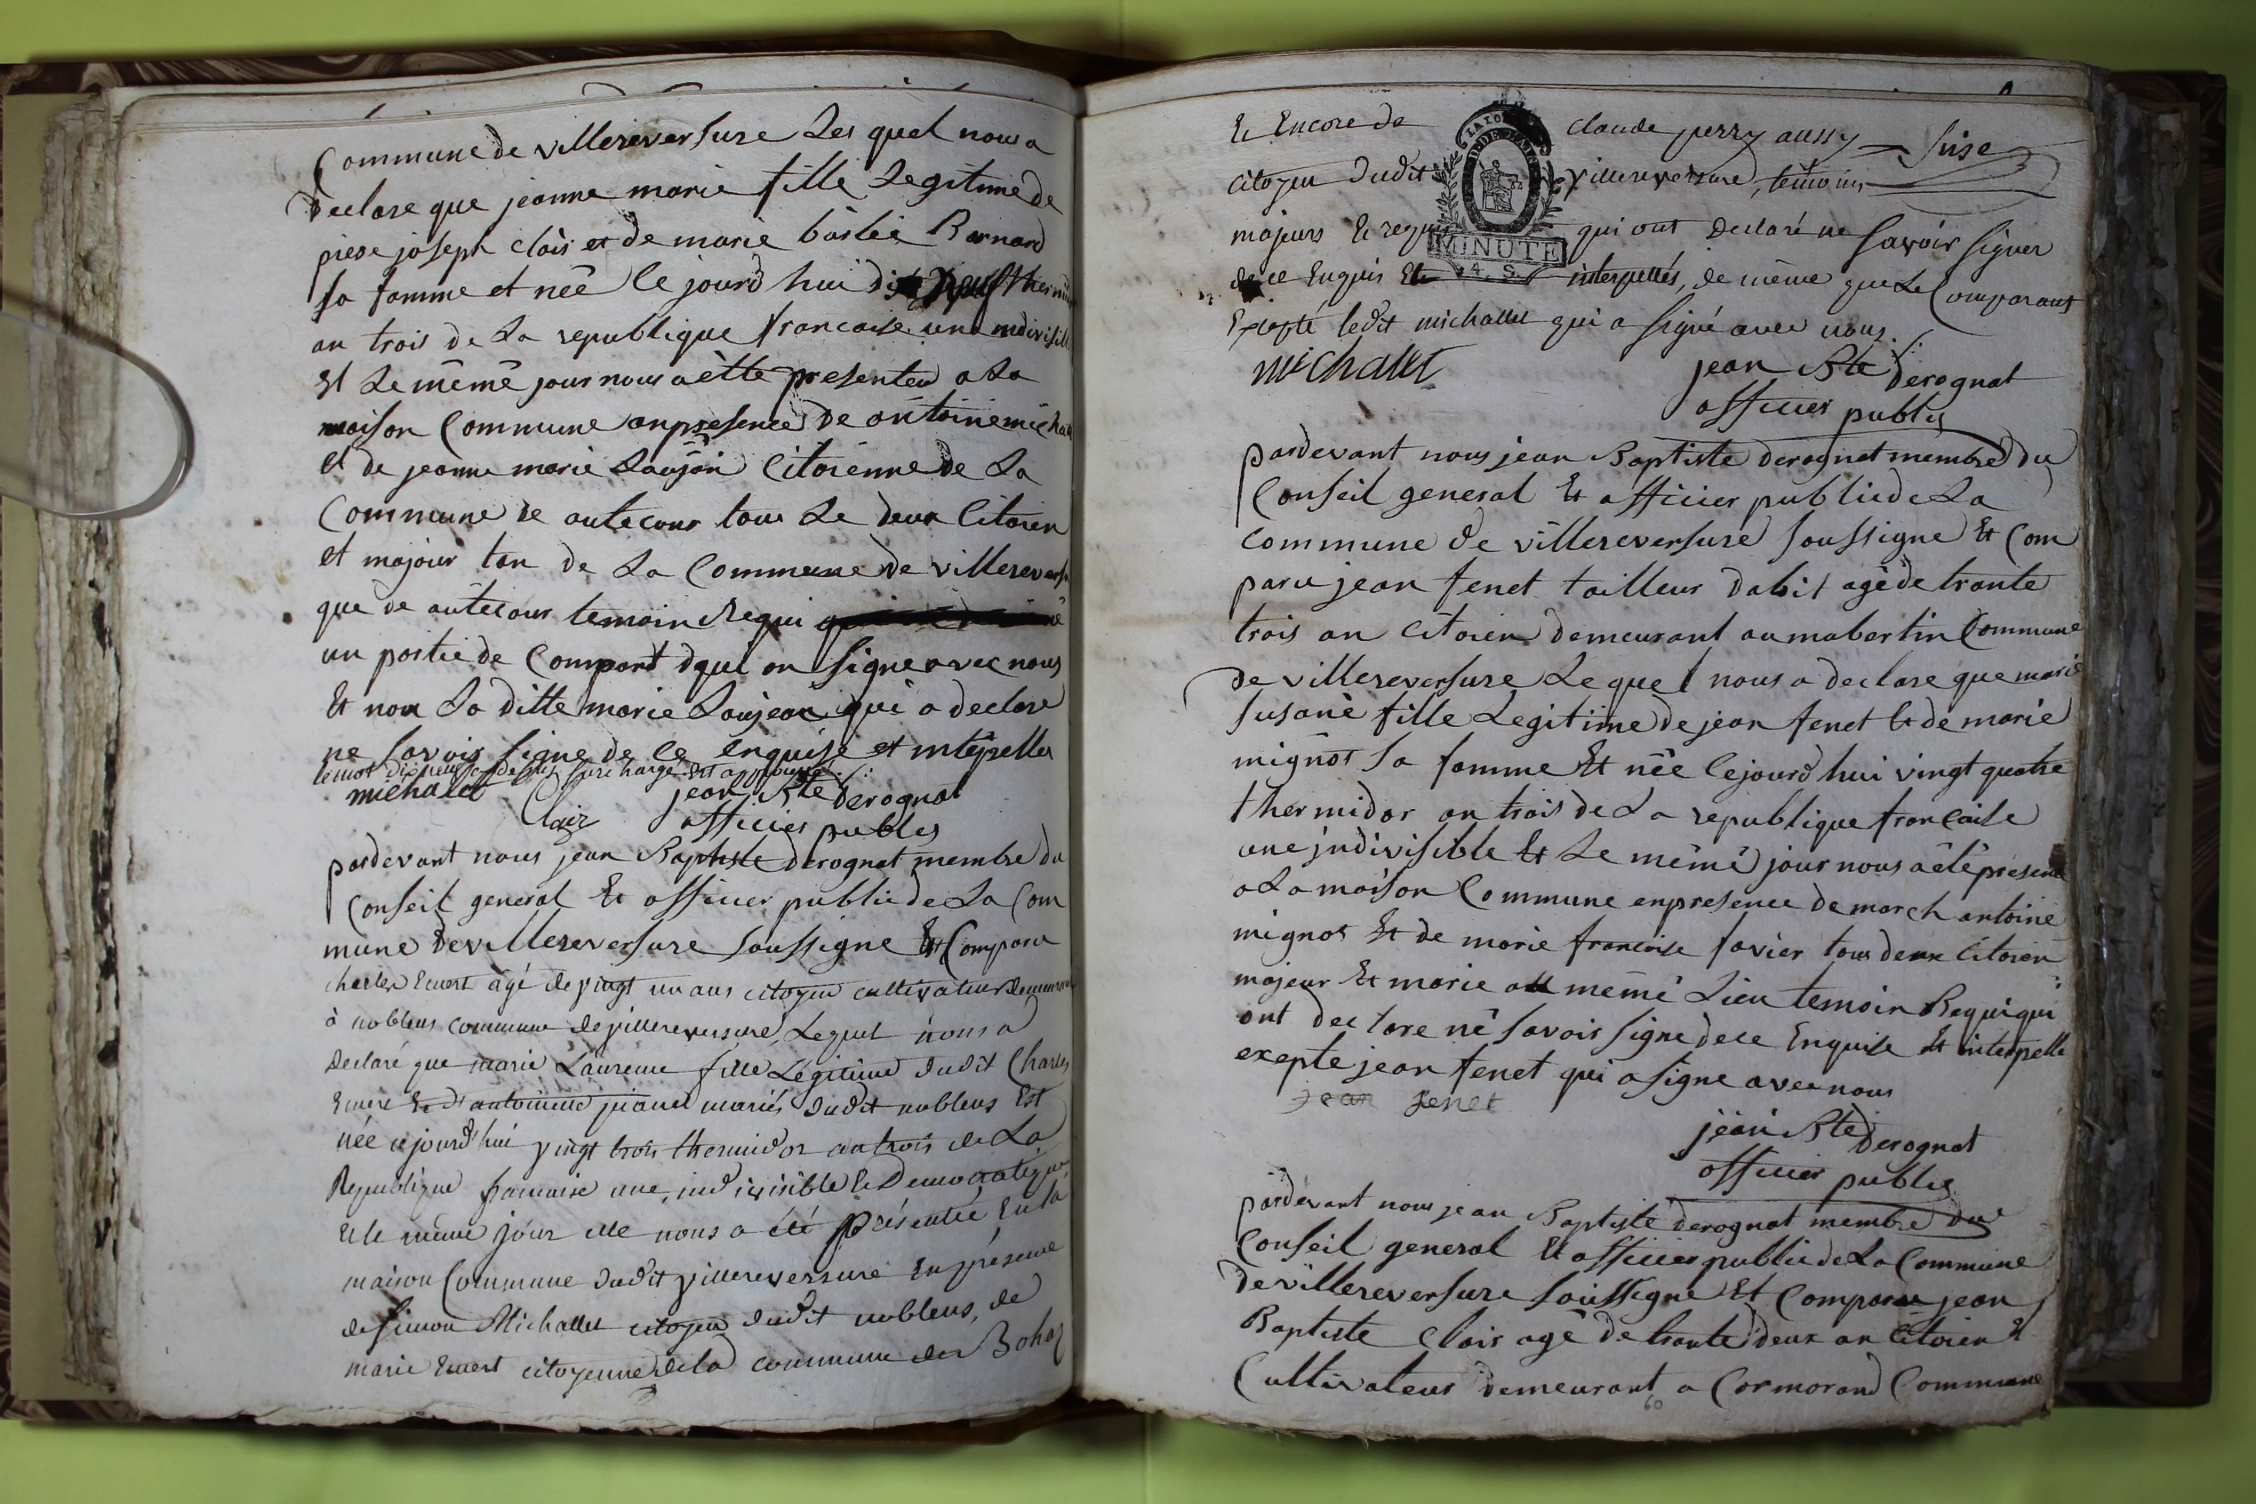 Commune de villereversure Les quel nous a
declare que jeanne marie fille Legitime de
piere joseph clair et de marie Barnard
sa famme et née le jourd hui dix neuf thermid
an trois de La republique francaise une indivisible
Et Le même jour nous a étté presenteu a La
maison Commune an presence de antoine michal
et de jeanne marie Laujon Citoienne de La
Commune de autecour tous Le deux Citoien
et majour tan de La Commune de villerevers
que de autecour temoin Requi
un partie de Comparrt qui on signe avec nous
Et non La ditte marie Laujean qui a declare
ne savoir signe de ce enquise et intepeller
le mot dix neuf cy dessus surchargé est approuvé
michalet Clair jean Bte derognat
officier publes
pardevant nous jean Baptiste derognat membre du
Conseil general Et officier public de La Com
mune de villereversure soussigne Et Comparu
charles Euvert agé de vingt un ans citoyen cultivateur demeurant
à nobleus commune de villereversure, Lequel nous a
declaré que marie Laurence fille Légitime dudit Charles
Euvert Et d'antoinette mariés dudit nobleus Est
née cejourd'hui vingt trois thermidor an trois de La
Republique francaise une, indivisible & Democratique
Et le même jour elle nous a été présentée En la
maison Commune dudit villereversure En présence
de simon Michallet citoyen dudit nobleus, de
marie Euvert citoyenne de la commune de Bohas
Et Encore de claude perry aussy Suse
citoyen dudit villereversure, témoins
majeurs Et requis qui ont declaré ne savoir signer
de ce Enquis Et interpellés, de même que Le Comparant
Excepté ledit michallet qui a signé avec nous.
LA LOI
MINUTE
4. S.
michallet jean Bte derognat
officier publes
pardevant nous jean Baptiste derognat membre du
Conseil general Et officier public de La
commune de villereversure soussigne Et Com
paru jean fenet tailleur dabit agé de trante
trois an Citoien demeurant au mabertin Commune
de villereversure Le quel nous a declare que marie
susane fille Legitiime de jean fenet Et de marie
mignot sa famme Et née le jourd hui vingt quatre
thermidor an trois de La republique francaise
une indivisible Et Le même jour nous a été presente
a La maison Commune en presence de march antoine
mignot Et de marie francoise favier tous deux Citoien
majeur Et marie au même Lieu temoin Requi qui
ont declare ne savoir signe de ce Enquise Et interpelle
exepte jean fenet qui a signe avec nous
jean fenet
jean Bte derognat
officier publes
pardevant nous jean Baptiste derognat membre du
Conseil general Et officier public de La Commune
de villereversure soussigne Et Comparu jean
Baptiste Clair agé de trante deux an Citoien Et
Cultivateur demeurant a Cormorand Commune
60